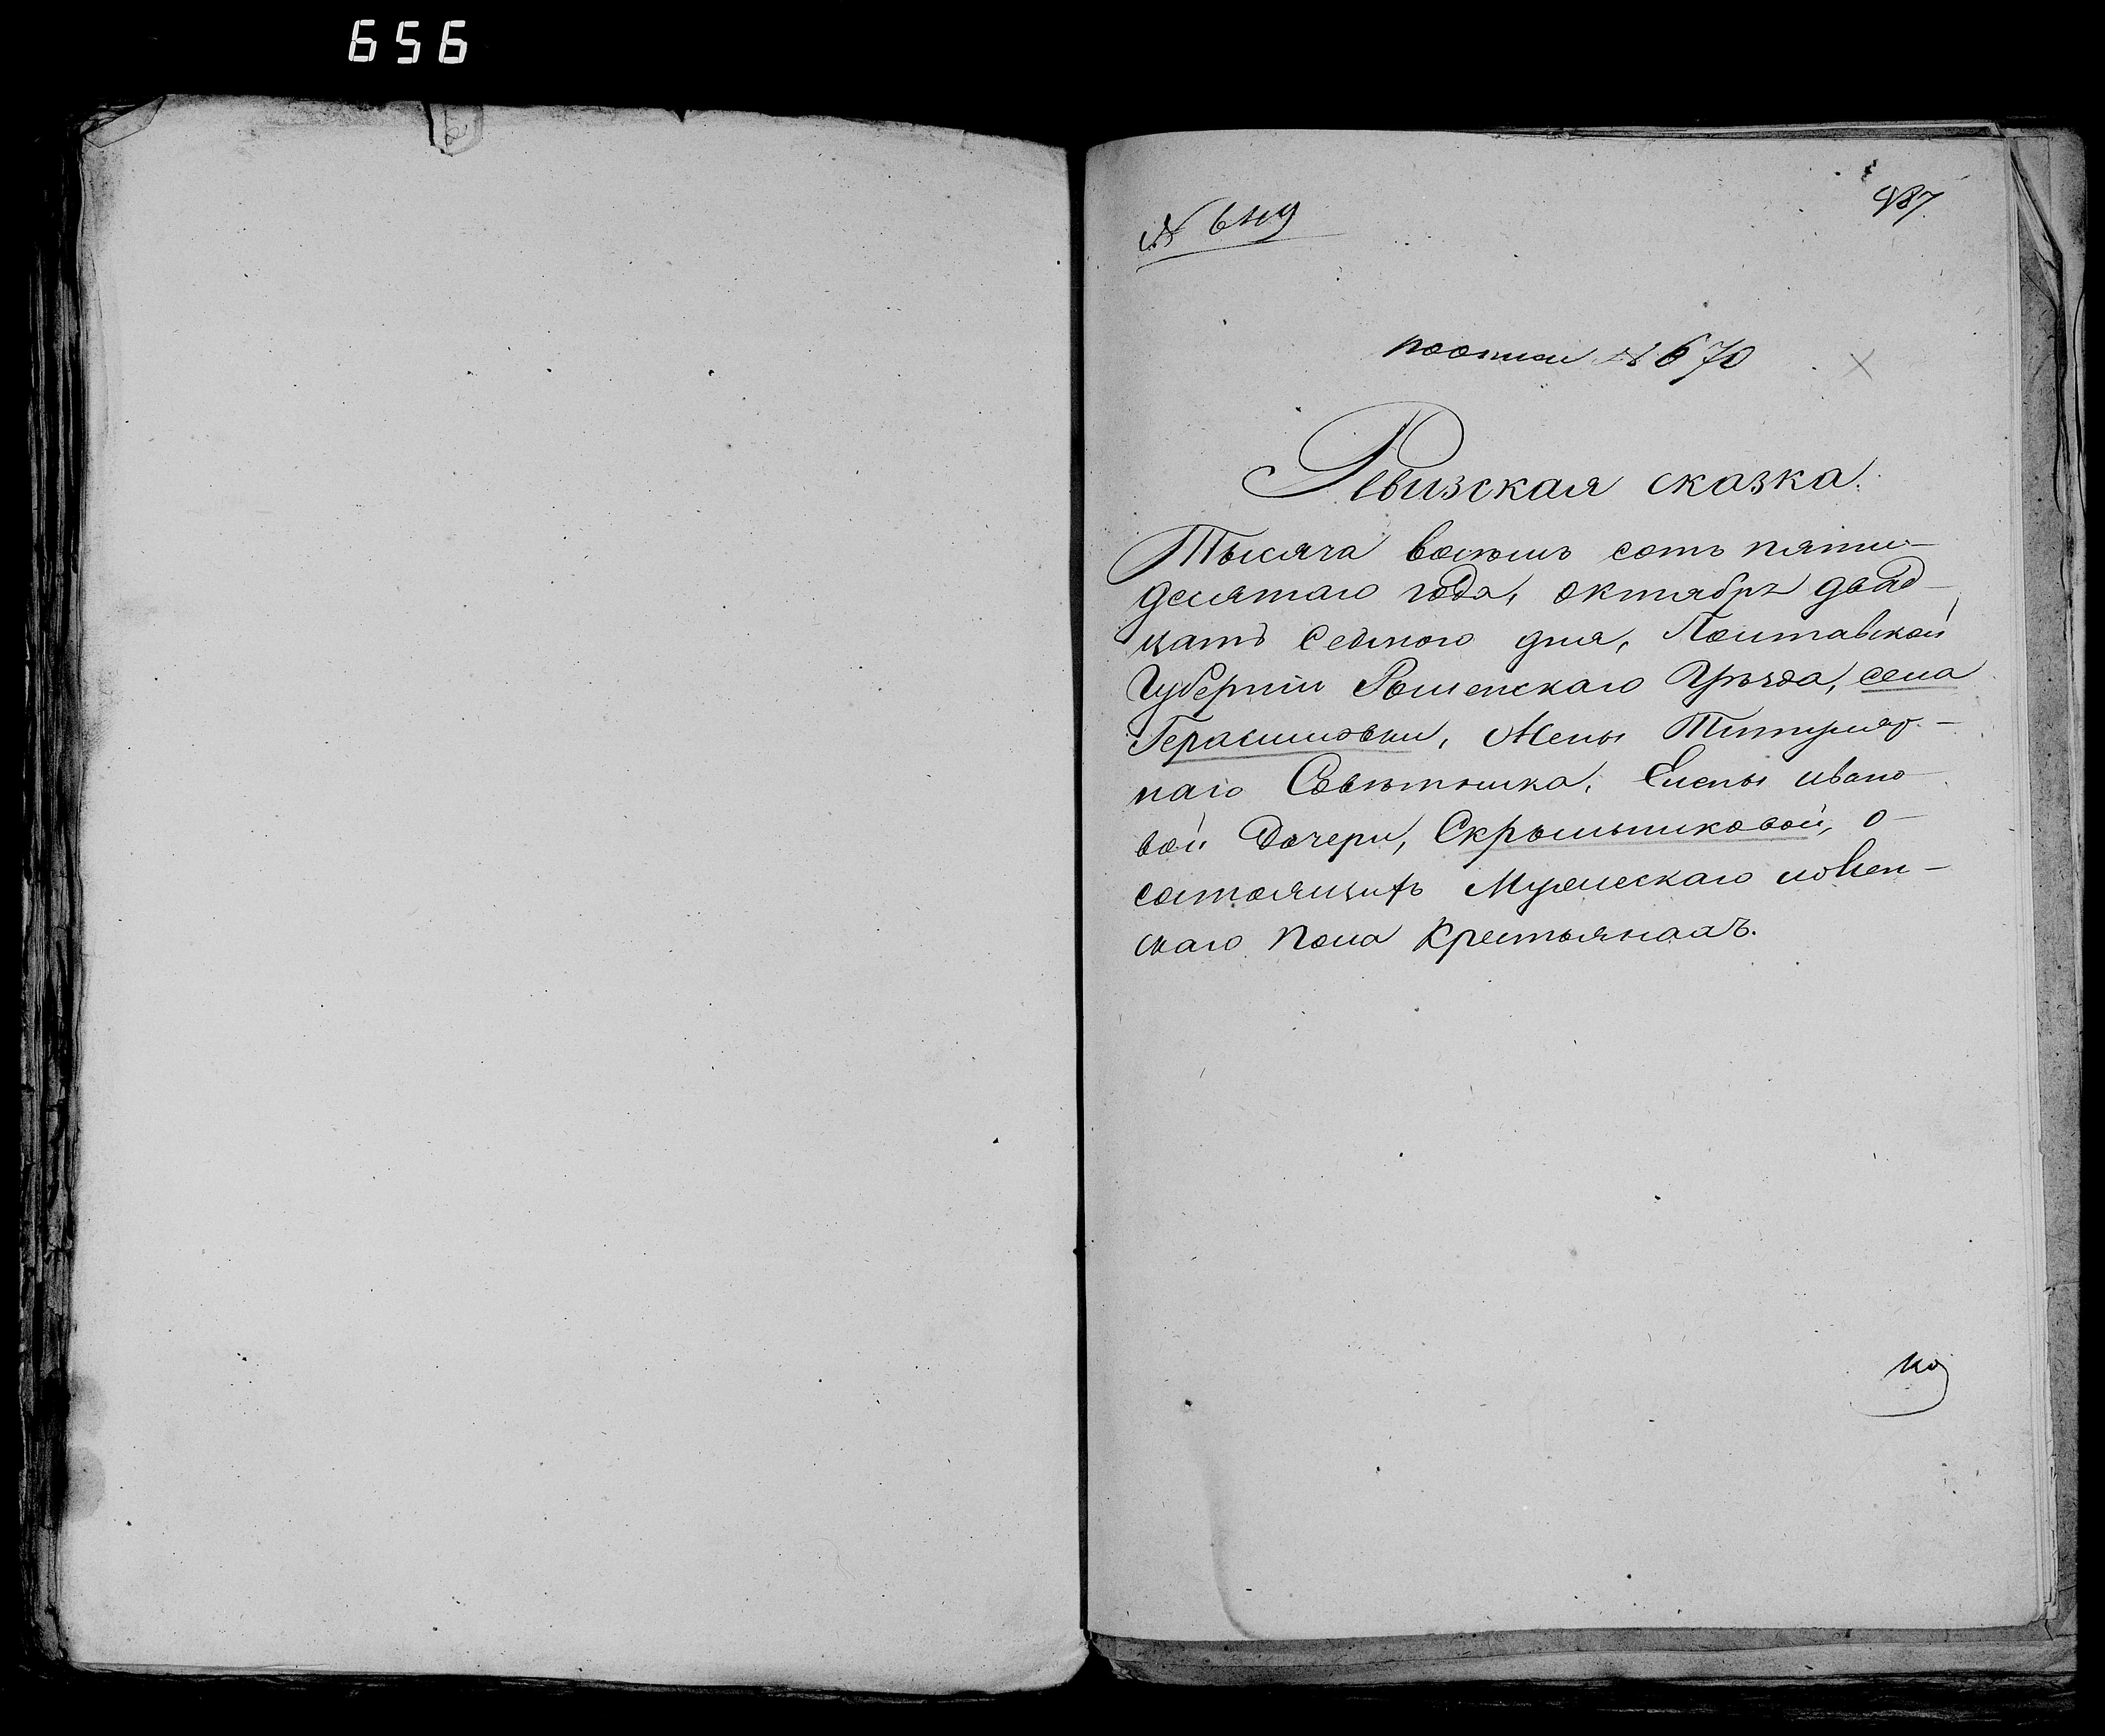 656
987
№ 649
по описи № 670
Ревизская сказка.
Тысяча восемь сотъ пяти-
десятаго года, октября двад-
цать седьмого дня, Полтавской
Губерніи Роменскаго Уѣзда, села
Герасимовки, Жены Титуляр-
наго Совѣтника, Елены Ивано
вой Дочери, Скрыльниковой, о
состоящихъ Мужескаго и Жен-
скаго пола Крестьянахъ.